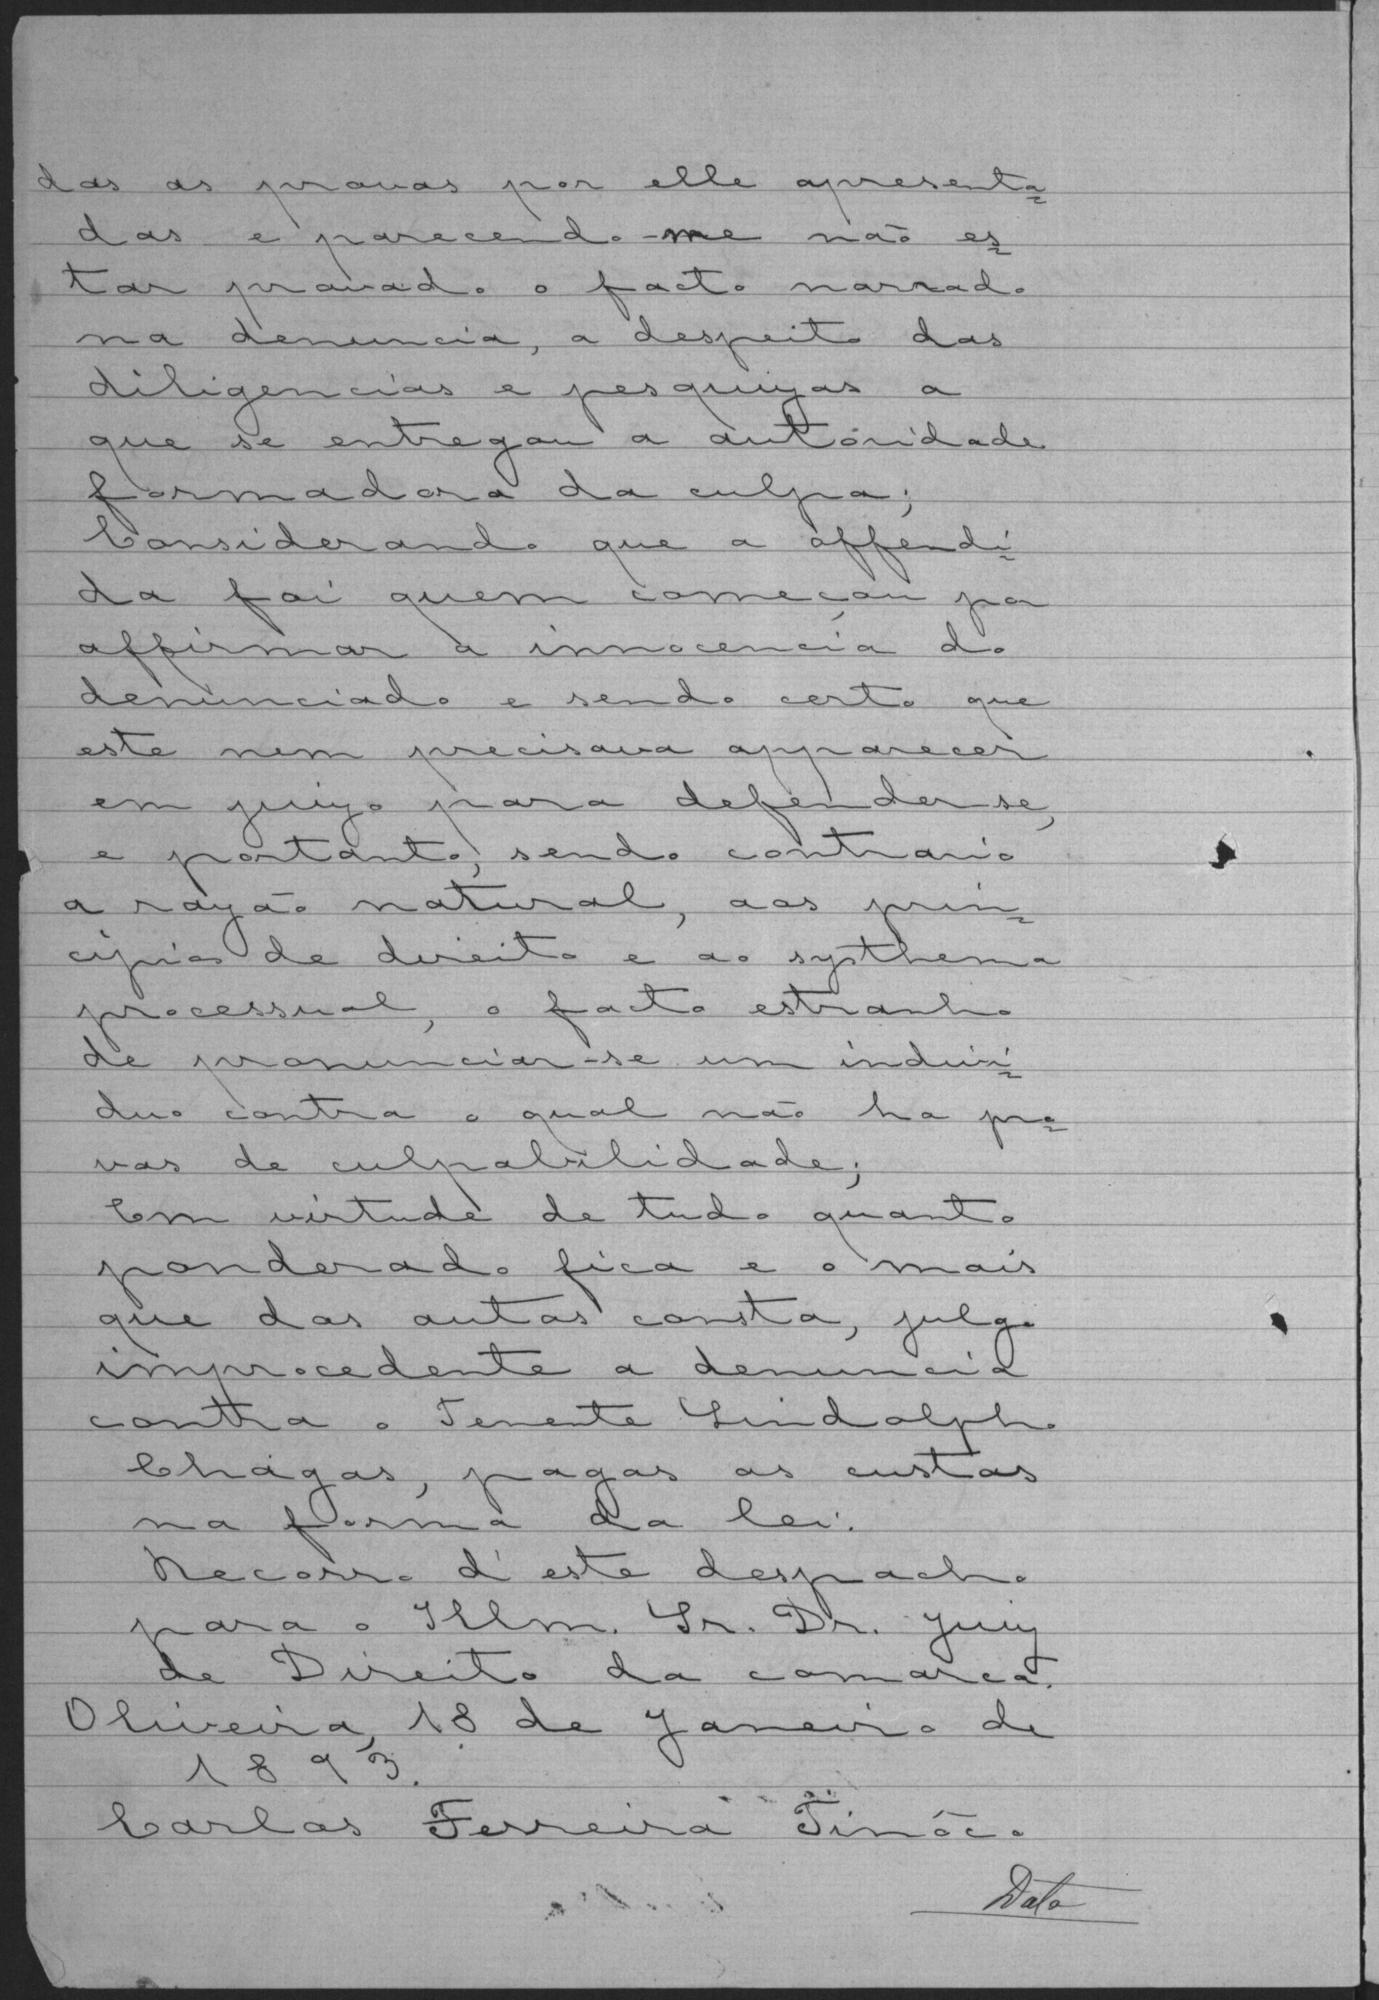 das as provas por elle apresenta=
das e parecendo-me não es=
tar provado o facto narrado
na denuncia, a despeito das
diligencias e pesquizas a
que se entregou a autóridade
formadora da culpa;
Considerando que a offendi=
da foi quem começou por
affirmar a innocencia do
denunciado e sendo certo que
este nem precisava apparecer
em juizo para defender-se,
e portanto, sendo contrario
a razão natural, aos prin=
cipios de direito e ao systhema
processual, o facto estranho
de pronunciar-se um indivi=
duo contra o qual não ha pro=
vas de culpabilidade;
Em virtude de tudo quanto
ponderado fica e o mais
que dos autos consta, julgo
improcedente a denuncia
contra o Tenente Lindolpho
Chagas, pagas as custas
na forma da lei.
Recorro d'este despacho
para o Illm. Sr. Dr. Juiz
de Direito da comarca.
Oliveira, 18 de Janeiro de
1893.
Carlos Ferreira Tinôco
Data